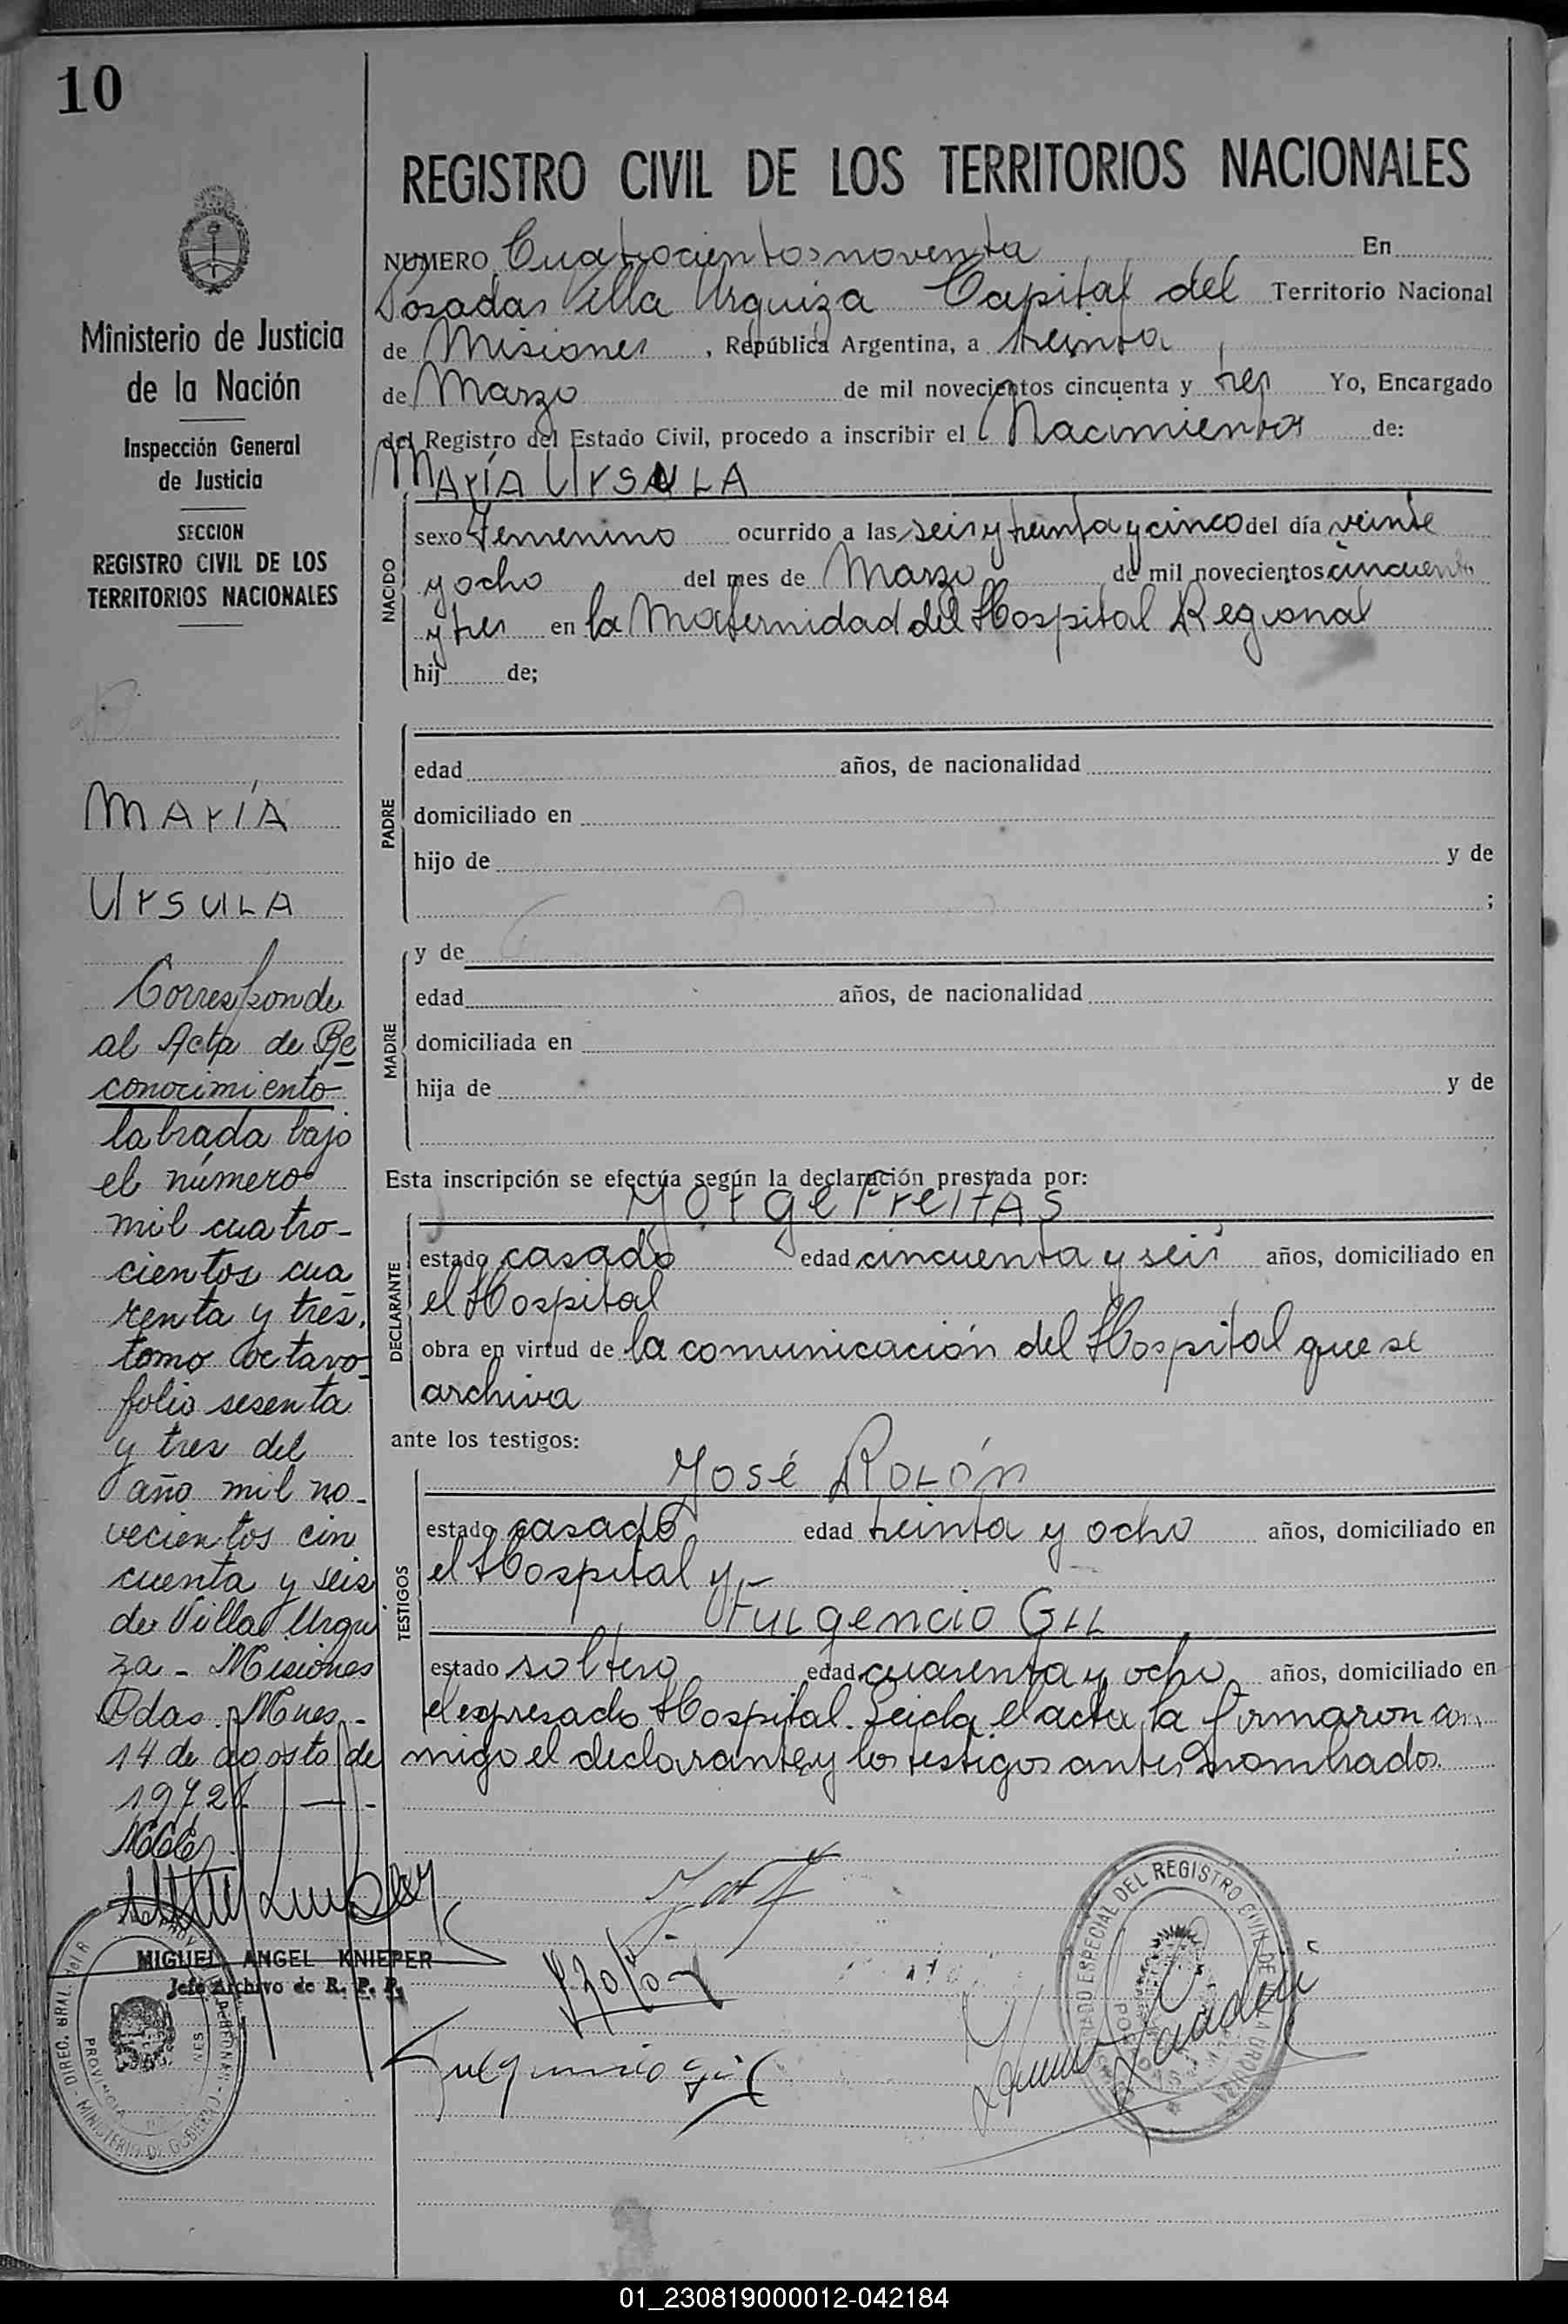 10
REGISTRO CIVIL DE LOS TERRITORIOS NACIONALES
NUMERO Cuatrocientos noventa En
Posadas Villa Urquiza Capital del Territorio Nacional
de Misiones, República Argentina, a treinta
de Marzo de mil novecientos cincuenta y tres Yo, Encargado
del Registro del Estado Civil, procedo a inscribir el Nacimiento de:
MARÍA URSULA
NACIDO
sexo Femenino ocurrido a las seis y treinta y cinco del día veinte
y ocho del mes de Marzo de mil novecientos cincuenta
y tres en la Maternidad del Hospital Regional
hij de;
PADRE
edad años, de nacionalidad
domiciliado en
hijo de y de
;
MADRE
y de
edad años, de nacionalidad
domiciliada en
hija de y de
Esta inscripción se efectúa según la declaración prestada por:
Jorge Freitas
DECLARANTE
estado casado edad cincuenta y seis años, domiciliado en
el Hospital
obra en virtud de la comunicación del Hospital que se
archiva
ante los testigos:
José Rolón
TESTIGOS
estado casado edad treinta y ocho años, domiciliado en
el Hospital y
Fulgencio Gil
estado soltero edad cuarenta y ocho años, domiciliado en
el expresado Hospital. Leida el acta, la firmaron con
migo el declarante y los testigos antes nombrados.
Rolón
Fulgencio Gil
Ministerio de Justicia
de la Nación
Inspección General
de Justicia
SECCION
REGISTRO CIVIL DE LOS
TERRITORIOS NACIONALES
MARÍA
URSULA
Corresponde
al Acta de Re
conocimiento
labrada bajo
el número
mil cuatro-
cientos cua
renta y tres,
tomo octavo-
folio sesenta
y tres del
año mil no-
vecientos cin
cuenta y seis
de Villa Urqui
za - Misiones
Pdas. Mnes -
14 de agosto de
1972
MIGUEL ANGEL KNIEPER
Jefe Archivo de R. P. P.
DIREC. GRAL. del R
MINISTERIO DE GOBIERNO
PROVINCIA
ESPECIAL DEL REGISTRO CIVIL DE
01_230819000012-042184